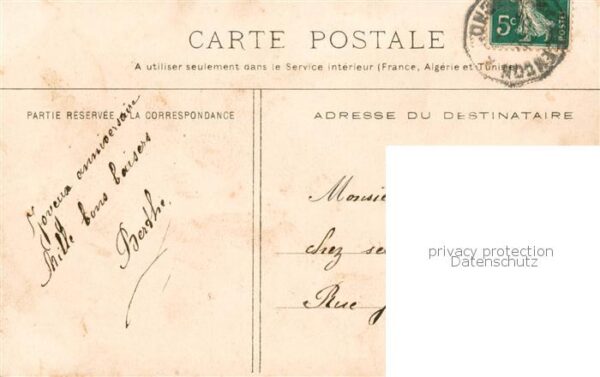 CARTE POSTALE
A utiliser seulement dans le Service intérieur (France, Algérie et Tunisie)
5c
PARTIE RÉSERVÉE A LA CORRESPONDANCE
Joyeux anniversaire
Mille bons baisers
Berthe.
ADRESSE DU DESTINATAIRE
Monsie
chez se
Rue
privacy protection
Datenschutz